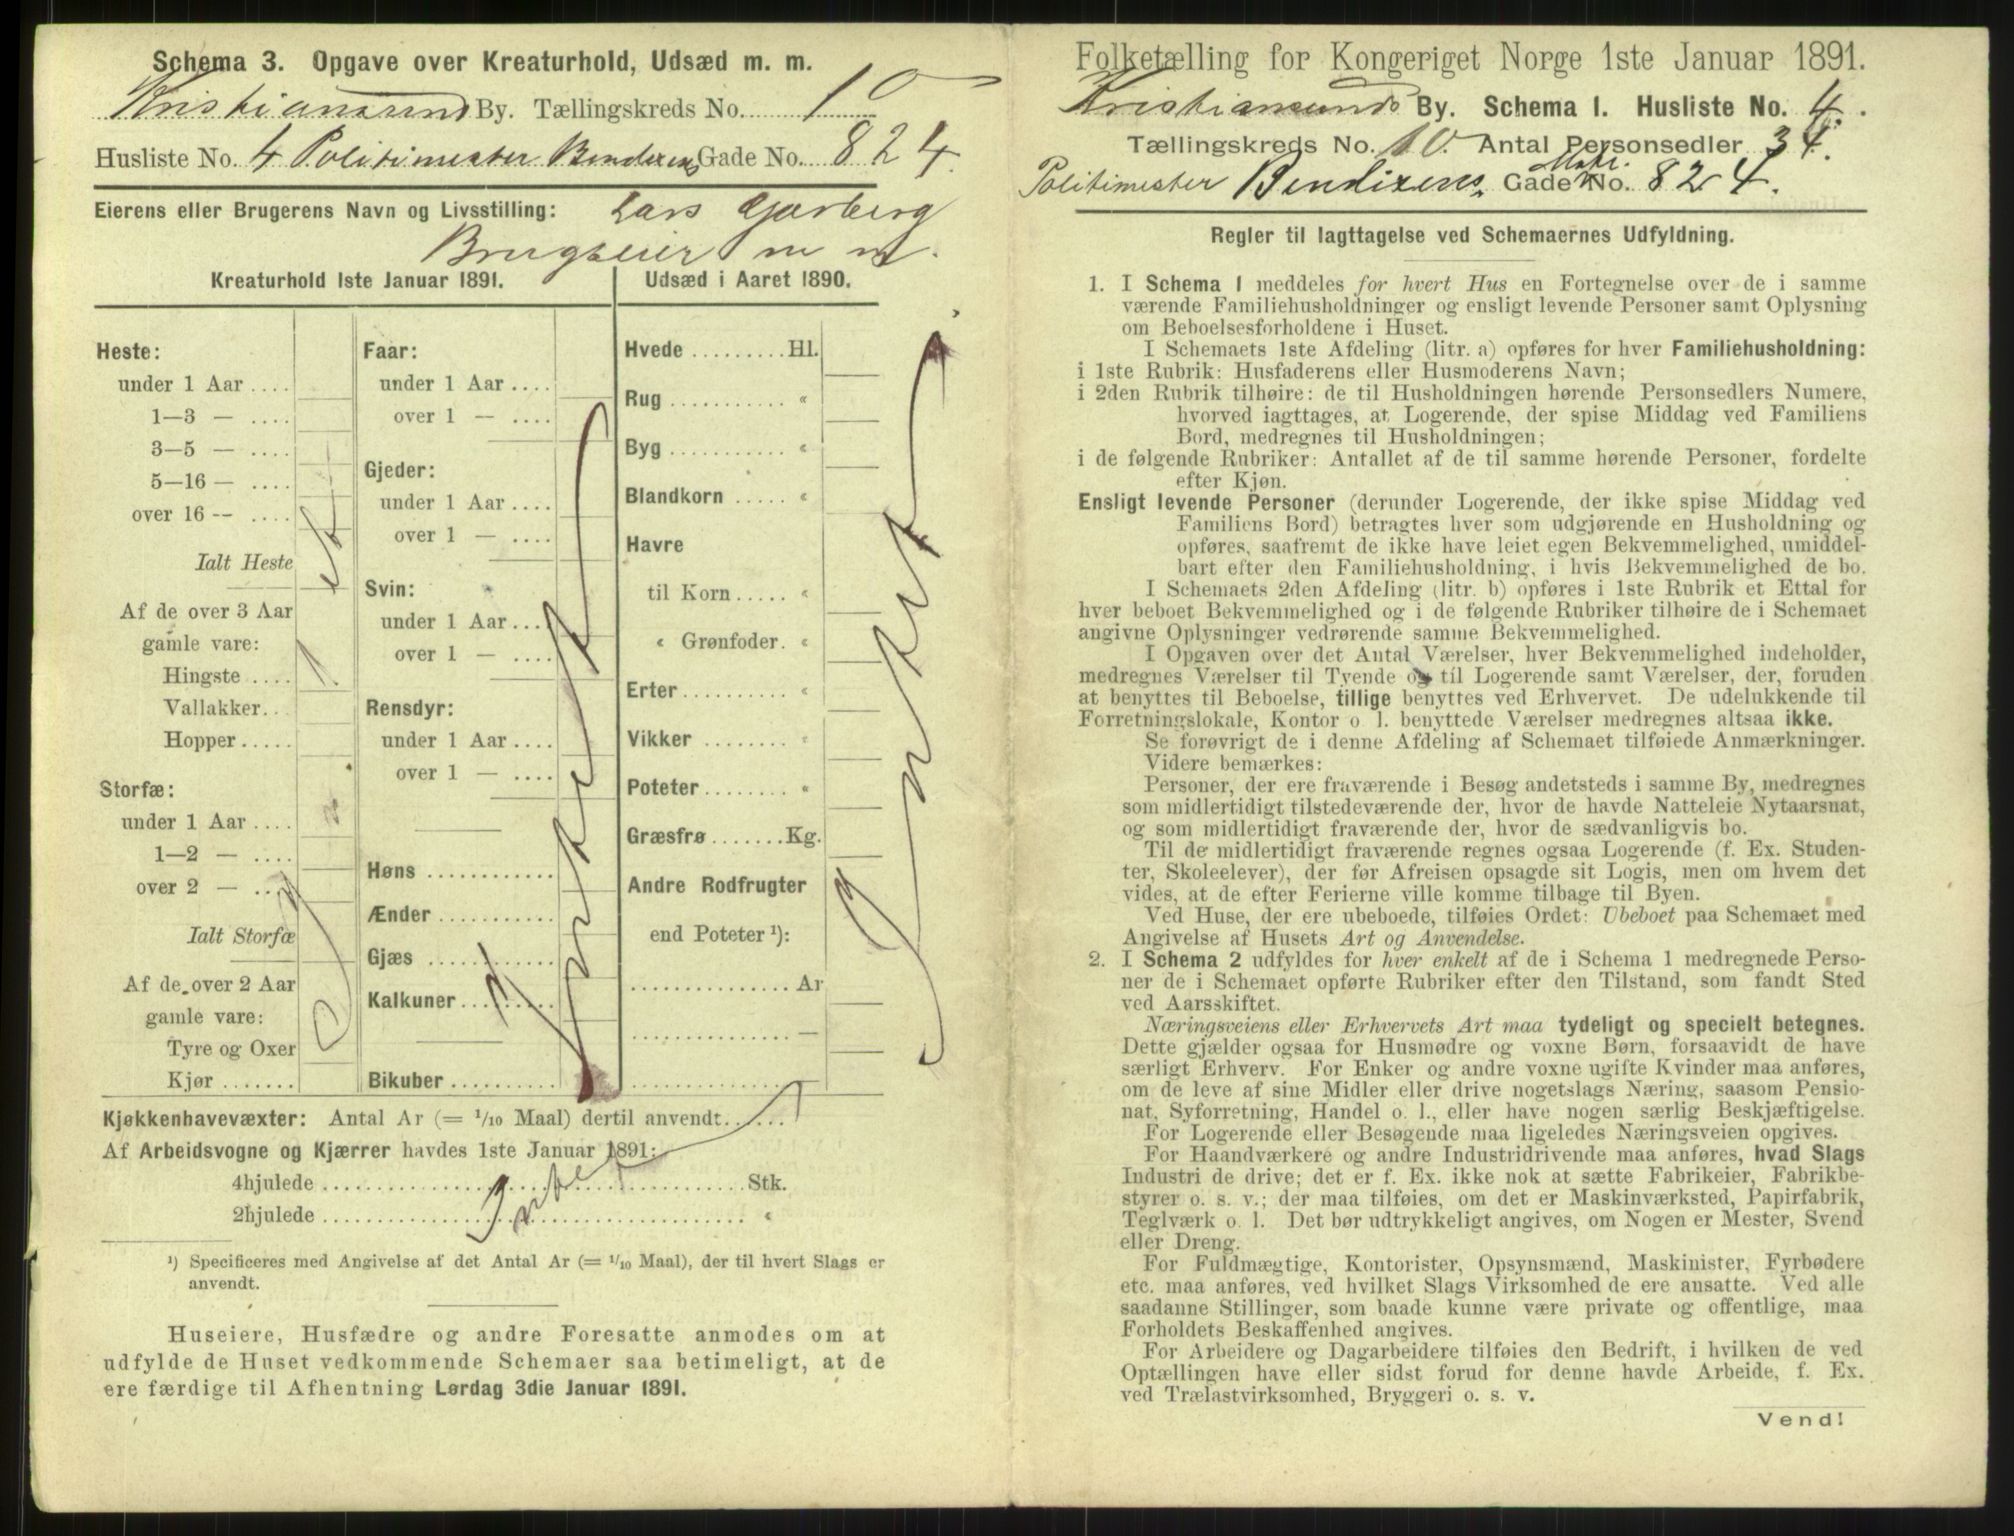 Schema 3. Opgave over Kreaturhold, Udsæd m. m.
Kristiansund By. Tællingskreds No. 10
Husliste No. 4 Politimester Bendixens Gade No. 824.
Eierens eller Brugerens Navn og Livsstilling: Lars Gjærberg
Brugseier m m.
Kreaturhold 1ste Januar 1891.
Heste:
under 1 Aar ....
1—3 — ....
3—5 — ....
5—16 — ....
over 16 -- ....
Ialt Heste
Af de over 3 Aar
gamle vare:
Hingste ....
Vallakker...
Hopper.....
Storfæ:
under 1 Aar ....
1—2 — ....
over 2 — ....
Ialt Storfæ
Af de over 2 Aar
gamle vare:
Tyre og Oxer
Kjør .......
Faar:
under 1 Aar ....
over 1 — ....
Gjeder:
under 1 Aar ....
over 1 — ....
Svin:
under 1 Aar ...
over 1 — ....
Rensdyr:
under 1 Aar ....
over 1 — ....
Høns ............
Ænder ...........
Gjæs ............
Kalkuner.........
Bikuber ..........
Intet
Udsæd i Aaret 1890.
Hvede .........Hl.
Rug ........... «
Byg ........... «
Blandkorn ..... «
Havre
til Korn..... «
« Grønfoder. «
Erter .......... «
Vikker ........ «
Poteter........ «
Græsfrø .......Kg.
Andre Rodfrugter
end Poteter ¹):
............... Ar
............... —
Intet
Kjøkkenhavevæxter: Antal Ar (= 1/10 Maal) dertil anvendt......
Af Arbeidsvogne og Kjærrer havdes 1ste Januar 1891:
4hjulede ........................................Stk.
2hjulede ........................................ «
Intet
¹) Specificeres med Angivelse af det Antal Ar (= 1/10 Maal), der til hvert Slags er
anvendt.
Huseiere, Husfædre og andre Foresatte anmodes om at
udfylde de Huset vedkommende Schemaer saa betimeligt, at de
ere færdige til Afhentning Lørdag 3die Januar 1891.
Folketælling for Kongeriget Norge 1ste Januar 1891.
Kristiansunds By. Schema I. Husliste No. 4.
Tællingskreds No. 10. Antal Personsedler 34.
Politimester Bendixens Gade No. 824.
Regler til Iagttagelse ved Schemaernes Udfyldning.
1. I Schema 1 meddeles for hvert Hus en Fortegnelse over de i samme
værende Familiehusholdninger og ensligt levende Personer samt Oplysning
om Beboelsesforholdene i Huset.
I Schemaets 1ste Afdeling (litr. a) opføres for hver Familiehusholdning:
i 1ste Rubrik: Husfaderens eller Husmoderens Navn;
i 2den Rubrik tilhøire: de til Husholdningen hørende Personsedlers Numere,
hvorved iagttages, at Logerende, der spise Middag ved Familiens
Bord, medregnes til Husholdningen;
i de følgende Rubriker: Antallet af de til samme hørende Personer, fordelte
efter Kjøn.
Ensligt levende Personer (derunder Logerende, der ikke spise Middag ved
Familiens Bord) betragtes hver som udgjørende en Husholdning og
opføres, saafremt de ikke have leiet egen Bekvemmelighed, umiddel-
bart efter den Familiehusholdning, i hvis Bekvemmelighed de bo.
I Schemaets 2den Afdeling (litr. b) opføres i 1ste Rubrik et Ettal for
hver beboet Bekvemmelighed og i de følgende Rubriker tilhøire de i Schemaet
angivne Oplysninger vedrørende samme Bekvemmelighed.
I Opgaven over det Antal Værelser, hver Bekvemmelighed indeholder,
medregnes Værelser til Tyende og til Logerende samt Værelser, der, foruden
at benyttes til Beboelse, tillige benyttes ved Erhvervet. De udelukkende til
Forretningslokale, Kontor o l. benyttede Værelser medregnes altsaa ikke.
Se forøvrigt de i denne Afdeling af Schemaet tilføiede Anmærkninger.
Videre bemærkes:
Personer, der ere fraværende i Besøg andetsteds i samme By, medregnes
som midlertidigt tilstedeværende der, hvor de havde Natteleie Nytaarsnat,
og som midlertidigt fraværende der, hvor de sædvanligvis bo.
Til de midlertidigt fraværende regnes ogsaa Logerende (f. Ex. Studen-
ter, Skoleelever), der før Afreisen opsagde sit Logis, men om hvem det
vides, at de efter Ferierne ville komme tilbage til Byen.
Ved Huse, der ere ubeboede, tilføies Ordet: Ubeboet paa Schemaet med
Angivelse af Husets Art og Anvendelse.
2. I Schema 2 udfyldes for hver enkelt af de i Schema 1 medregnede Perso-
ner de i Schemaet opførte Rubriker efter den Tilstand, som fandt Sted
ved Aarsskiftet.
Næringsveiens eller Erhvervets Art maa tydeligt og specielt betegnes.
Dette gjælder ogsaa for Husmødre og voxne Børn, forsaavidt de have
særligt Erhverv. For Enker og andre voxne ugifte Kvinder maa anføres,
om de leve af sine Midler eller drive nogetslags Næring, saasom Pensio-
nat, Syforretning, Handel o. l., eller have nogen særlig Beskjæftigelse.
For Logerende eller Besøgende maa ligeledes Næringsveien opgives.
For Haandværkere og andre Industridrivende maa anføres, hvad Slags
Industri de drive; det er f. Ex. ikke nok at sætte Fabrikeier, Fabrikbe-
styrer o. s. v.; der maa tilføies, om det er Maskinværksted, Papirfabrik,
Teglværk o l. Det bør udtrykkeligt angives, om Nogen er Mester, Svend
eller Dreng.
For Fuldmægtige, Kontorister, Opsynsmænd, Maskinister, Fyrbødere
etc. maa anføres, ved hvilket Slags Virksomhed de ere ansatte. Ved alle
saadanne Stillinger, som baade kunne være private og offentlige, maa
Forholdets Beskaffenhed angives.
For Arbeidere og Dagarbeidere tilføies den Bedrift, i hvilken de ved
Optællingen have eller sidst forud for denne havde Arbeide, f. Ex.
ved Trælastvirksomhed, Bryggeri o. s. v.
Vend!